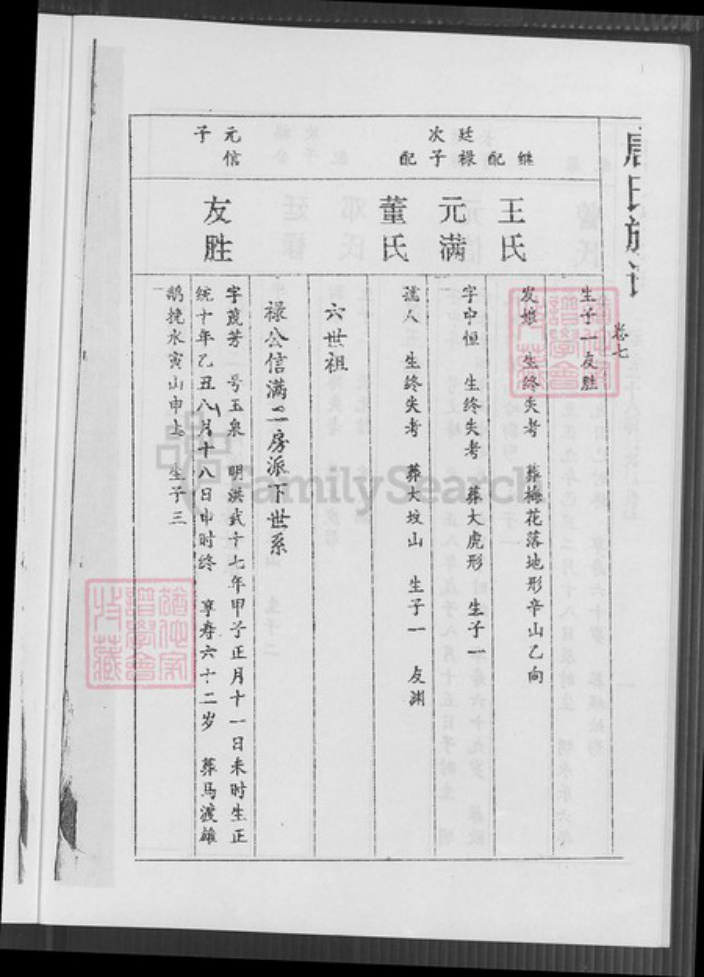 唐氏族谱
卷七
生子一友胜
继配
王氏
发娘 生终失考 葬梅花落地形辛山乙向
廷禄次子
元满
字中恒 生终失考 葬大虎形 生子一
配
董氏
孺人 生终失考 葬大坟山 生子一 友渊
六世祖
禄公信满二房派下世系
元信子
友胜
字茂芳 号玉泉 明洪武十七年甲子正月十一日未时生正
统十年乙丑八月十八日申时终 享寿六十二岁 葬马渡雄
鹅挽水寅山申 生子三
FamilySearch